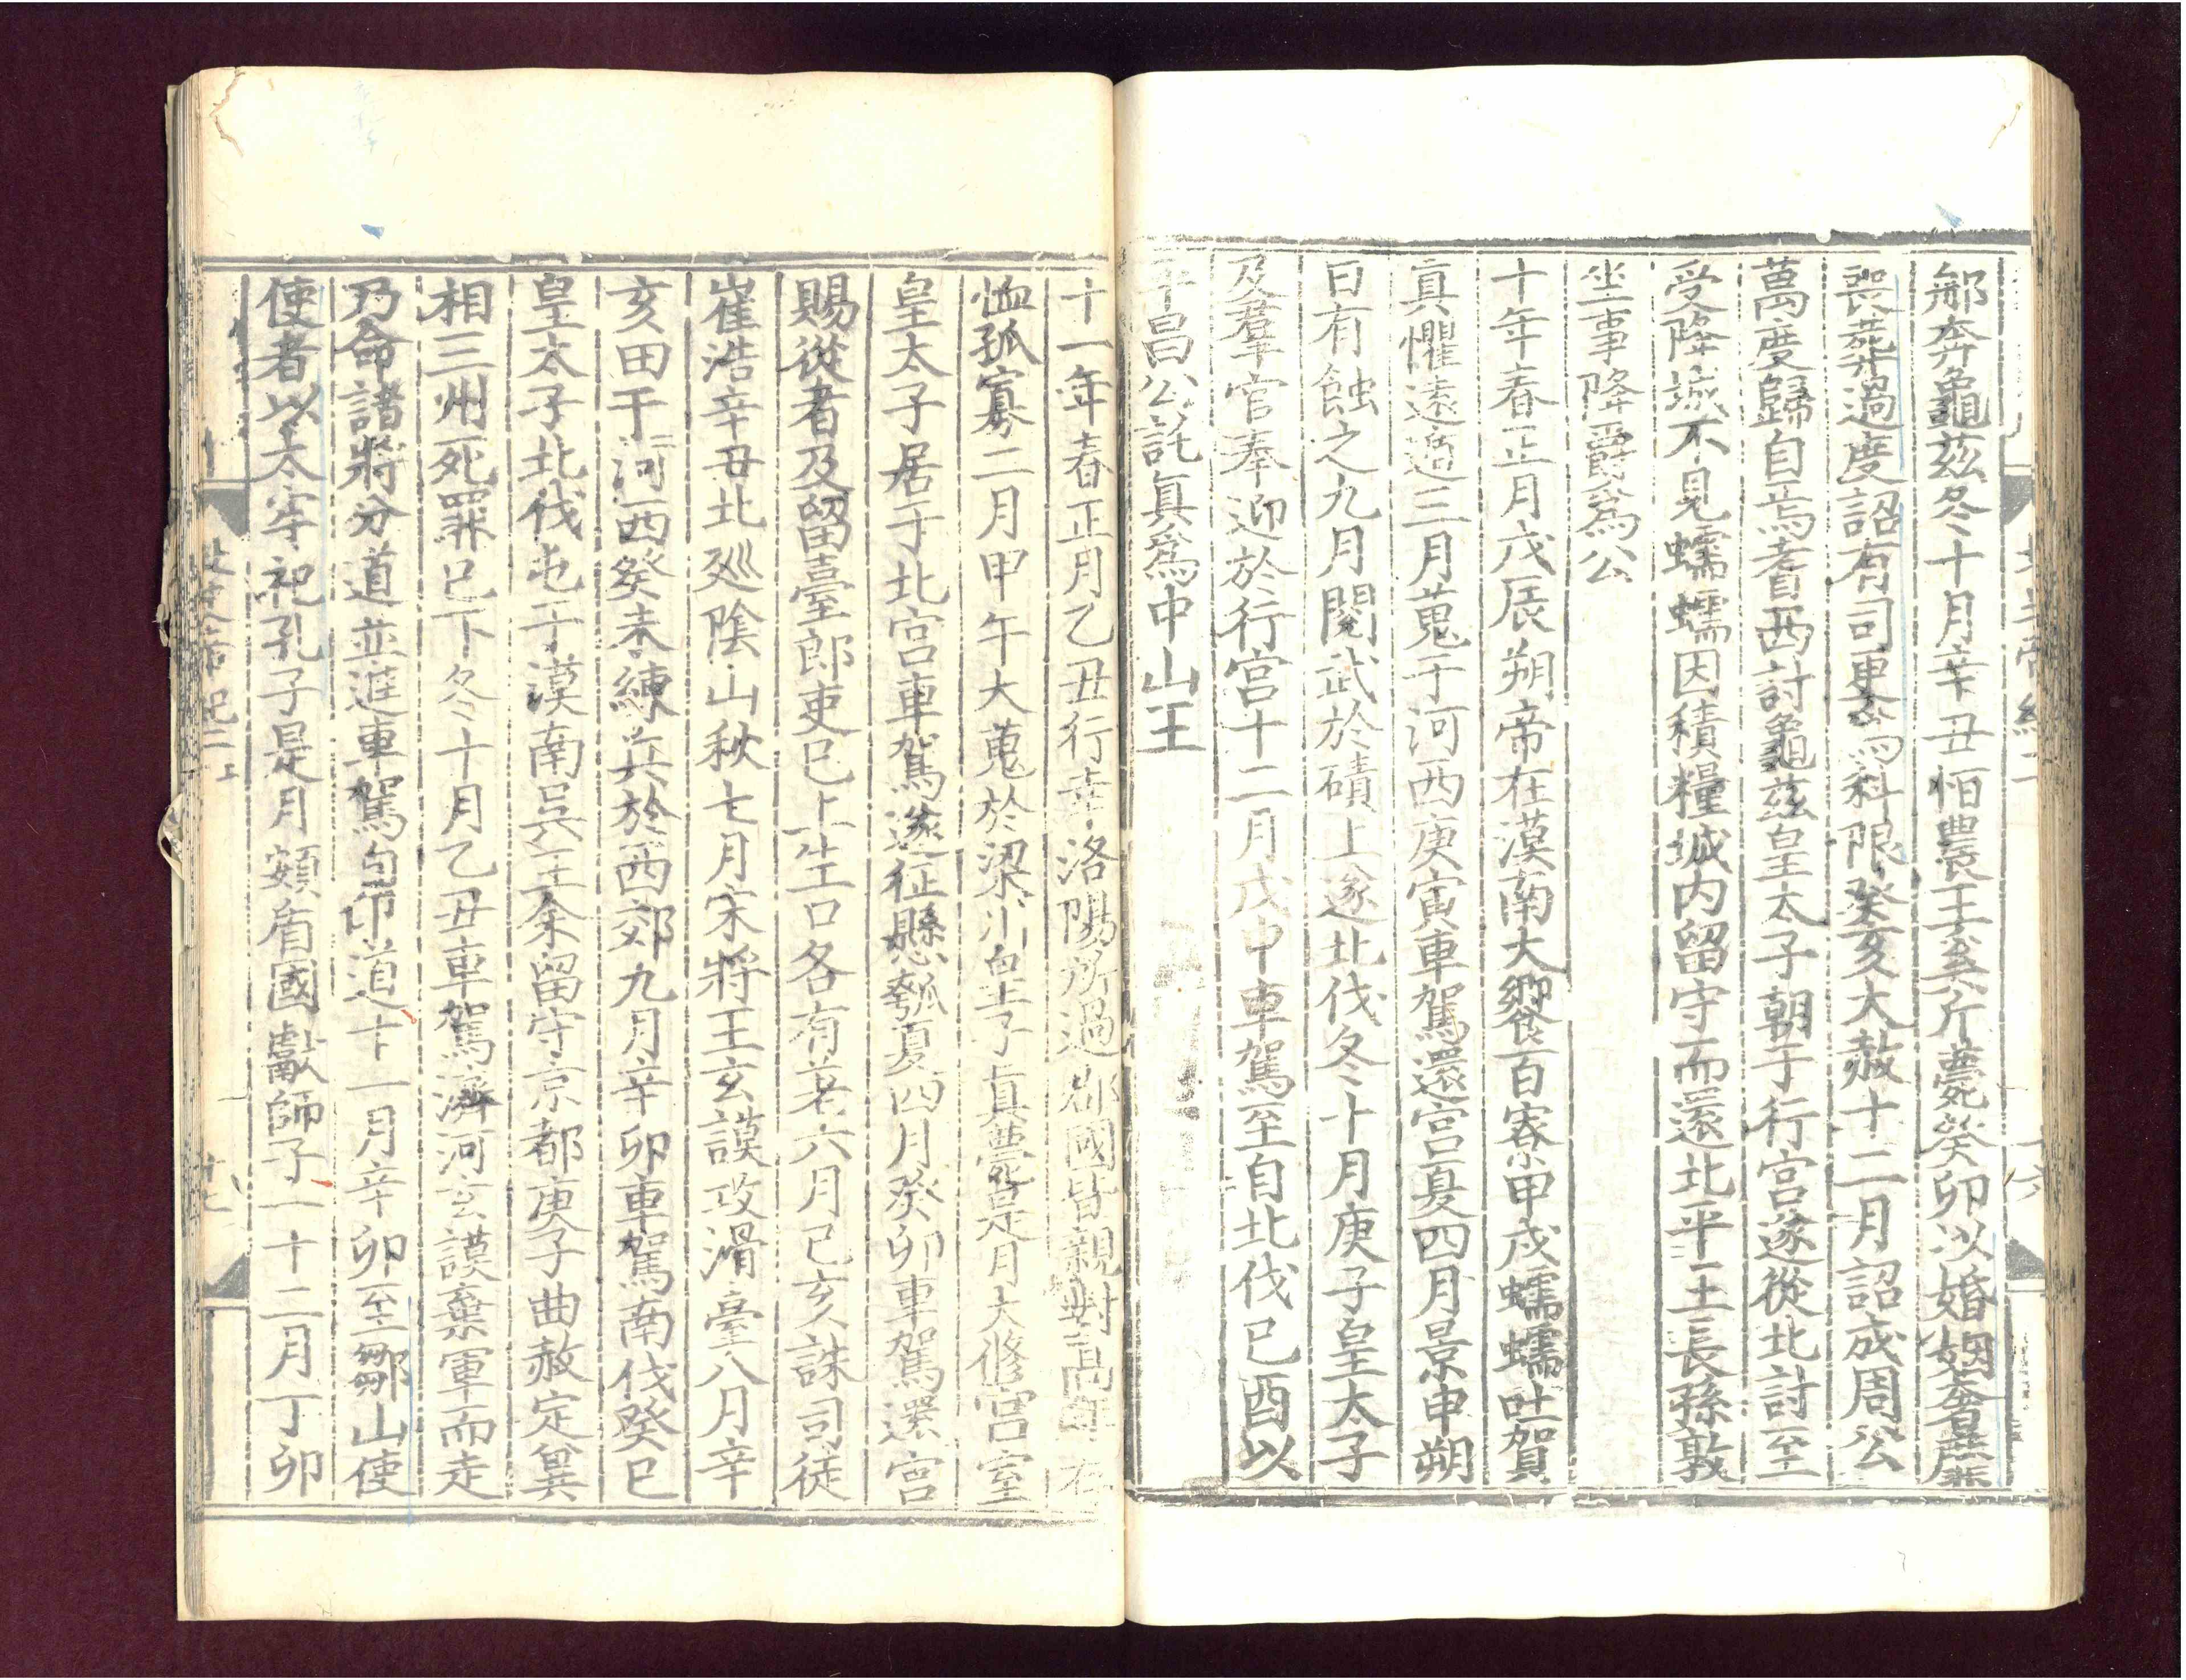 鄯奔龜茲冬十月辛丑恒農王奚斤薨癸卯以婚姻奢靡
喪葬過度詔有司更爲科限癸亥大赦十二月詔成周公
萬度歸自焉耆西討龜茲皇太子朝于行宮遂從北討至
受降城不見蠕蠕因積糧城内留守而還北平王長孫敦
坐事降爵爲公
十年春正月戊辰朔帝在漠南大饗百寮甲戌蠕蠕吐賀
真懼遠遁三月蒐于河西庚寅車駕還宮夏四月景申朔
日有蝕之九月閱武於磧上遂北伐冬十月庚子皇太子
及羣官奉迎於行宮十二月戊申車駕至自北伐己酉以
平昌公託真爲中山王
十一年春正月乙丑行幸洛陽所過郡國皆親對高年存
恤孤寡二月甲午大蒐於梁川皇子真薨是月大修宮室
皇太子居于北宮車駕遂征懸瓠夏四月癸卯車駕還宮
賜從者及留臺郎吏已上生口各有差六月己亥誅司徒
崔浩辛丑北廵陰山秋七月宋將王玄謨攻滑臺八月辛
亥田于河西癸未練兵於西郊九月辛卯車駕南伐癸巳
皇太子北伐屯于漠南吳王余留守京都庚子曲赦定冀
相三州死罪已下冬十月乙丑車駕濟河玄謨棄軍而走
乃命諸將分道並進車駕自中道十一月辛卯至鄒山使
使者以太牢祀孔子是月頞盾國獻師子一十二月丁卯